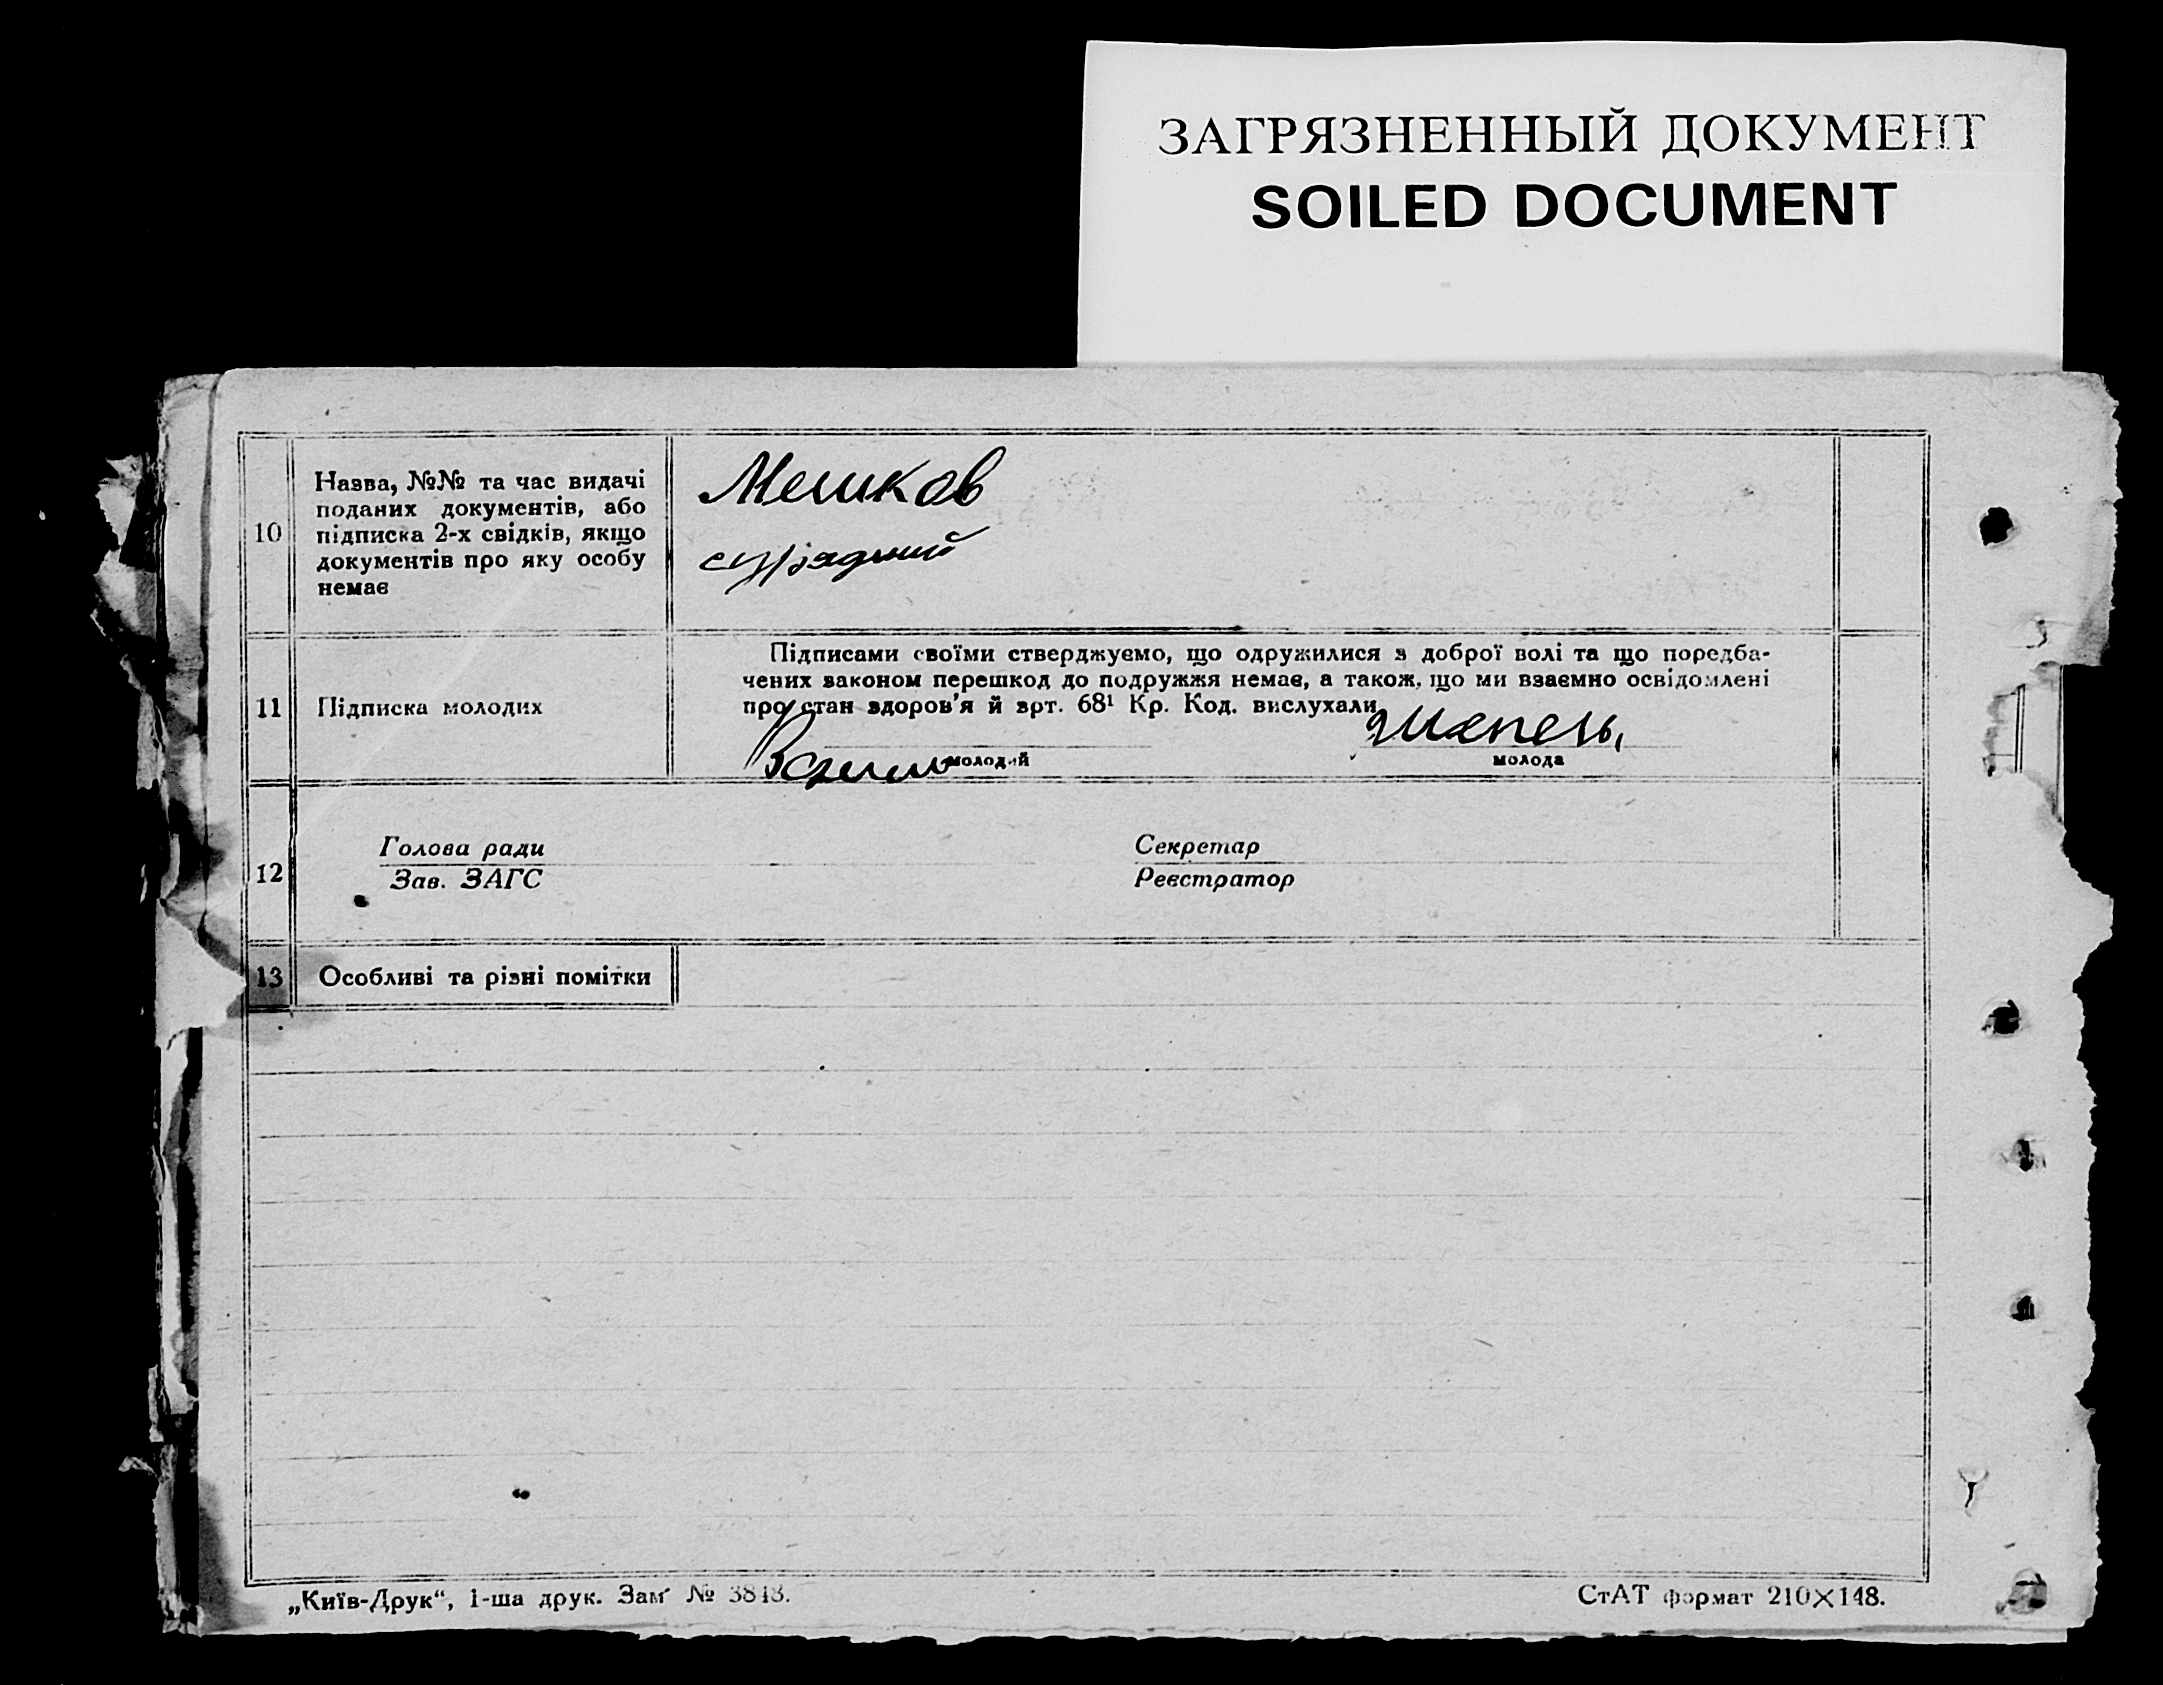 ЗАГРЯЗНЕННЫЙ ДОКУМЕНТ
SOILED DOCUMENT
10
Назва, №№ та час видачі
поданих документів, або
підписка 2-х свідків, якщо
документів про яку особу
немає
Мешков
11
Підписка молодих
Підписами своїми стверджуємо, що одружилися з доброї волі та що поредба-
чених законом перешкод до подружжя немає, а також, що ми взаємно освідомлені
про стан здоров'я й арт. 68¹ Кр. Код. вислухали
молодий
молода
12
Голова ради
Зав. ЗАГС
Секретар
Реєстратор
13
Особливі та різні помітки
„Київ-Друк“, 1-ша друк. Зам. № 3843.
СтАТ формат 210×148.